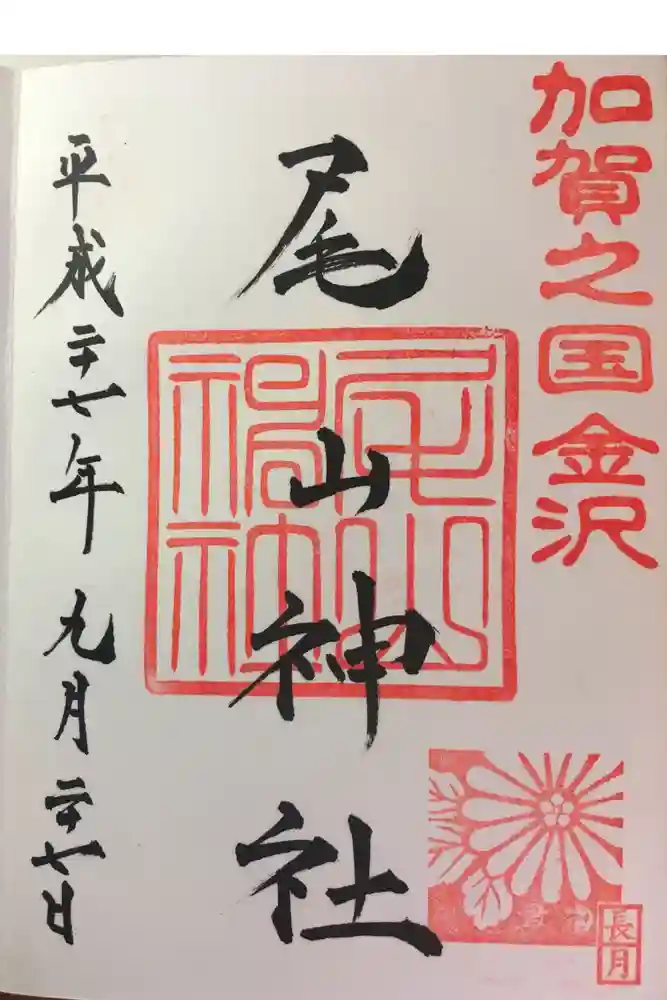 加賀之国金沢
尾山神社
平成二十七年九月二十七日
長月